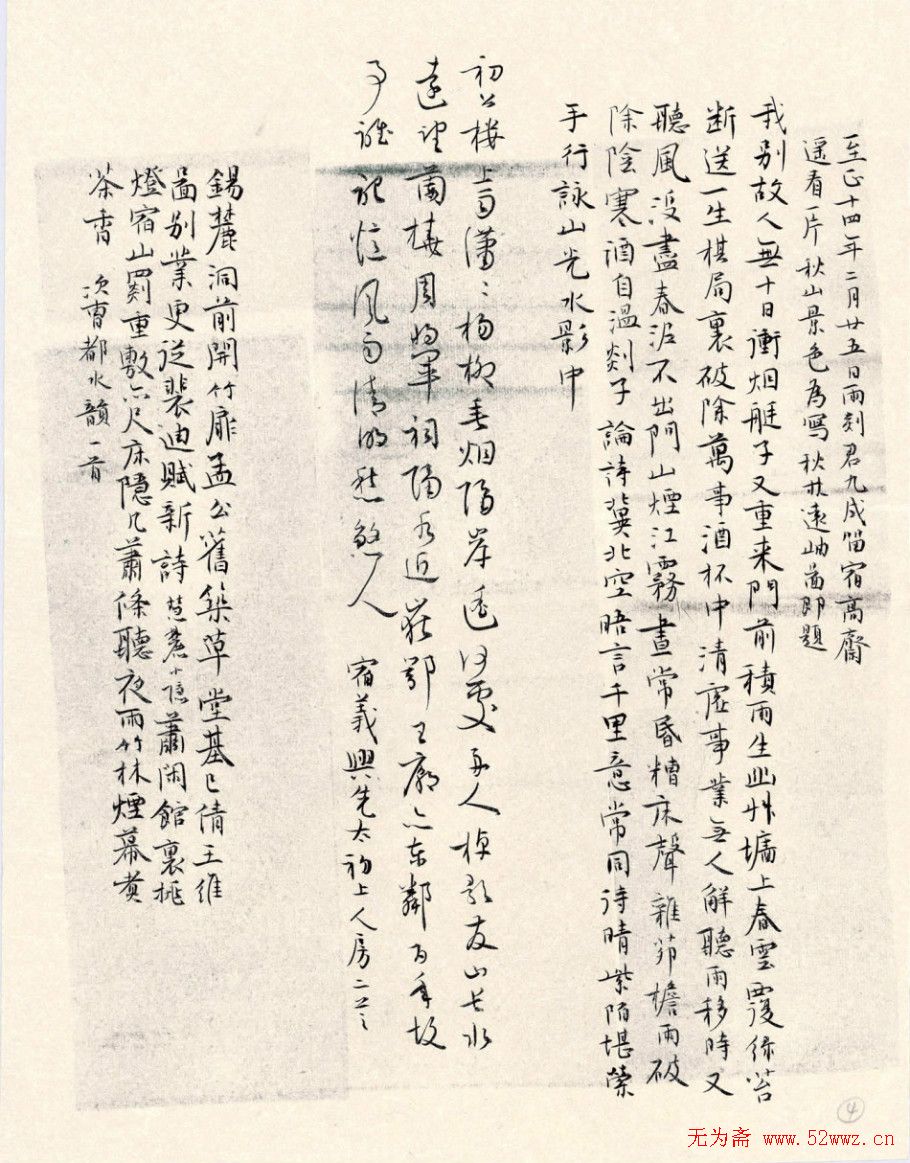 至正十四年二月廿五日雨剡君九成留宿高齋
遥看一片秋山景色為寫秋林遠岫啚即題
我别故人無十日衝烟艇子又重来門前積雨生幽艸墻上春雲覆緑苔
断送一生棋局裏破除萬事酒杯中清虚事業無人解聽雨移時又
聽風没盡春泥不出門山煙江霧晝常昏糟床聲雜茆檐雨破
除陰寒酒自温剡子論詩冀北空晤言千里意常同待晴紫陌堪縈
手行詠山光水影中
初公楼 潇ミ楊柳春烟隔岸
遠望蘭 周 軍祠陽 近 鄂王 東鄰百年故
風雨清明愁煞人 宿義興先太初上人房二首
錫麓洞前開竹扉孟公舊築草堂基已倩王維
啚别業更従裴迪賦新詩 慧麓小隐 蕭閑館裏挑
燈宿山罽重敷六尺床隠几蕭條聽夜雨竹林煙幕煑
茶香 次曹都水韻一首
④
无为斋 www.52wwz.cn